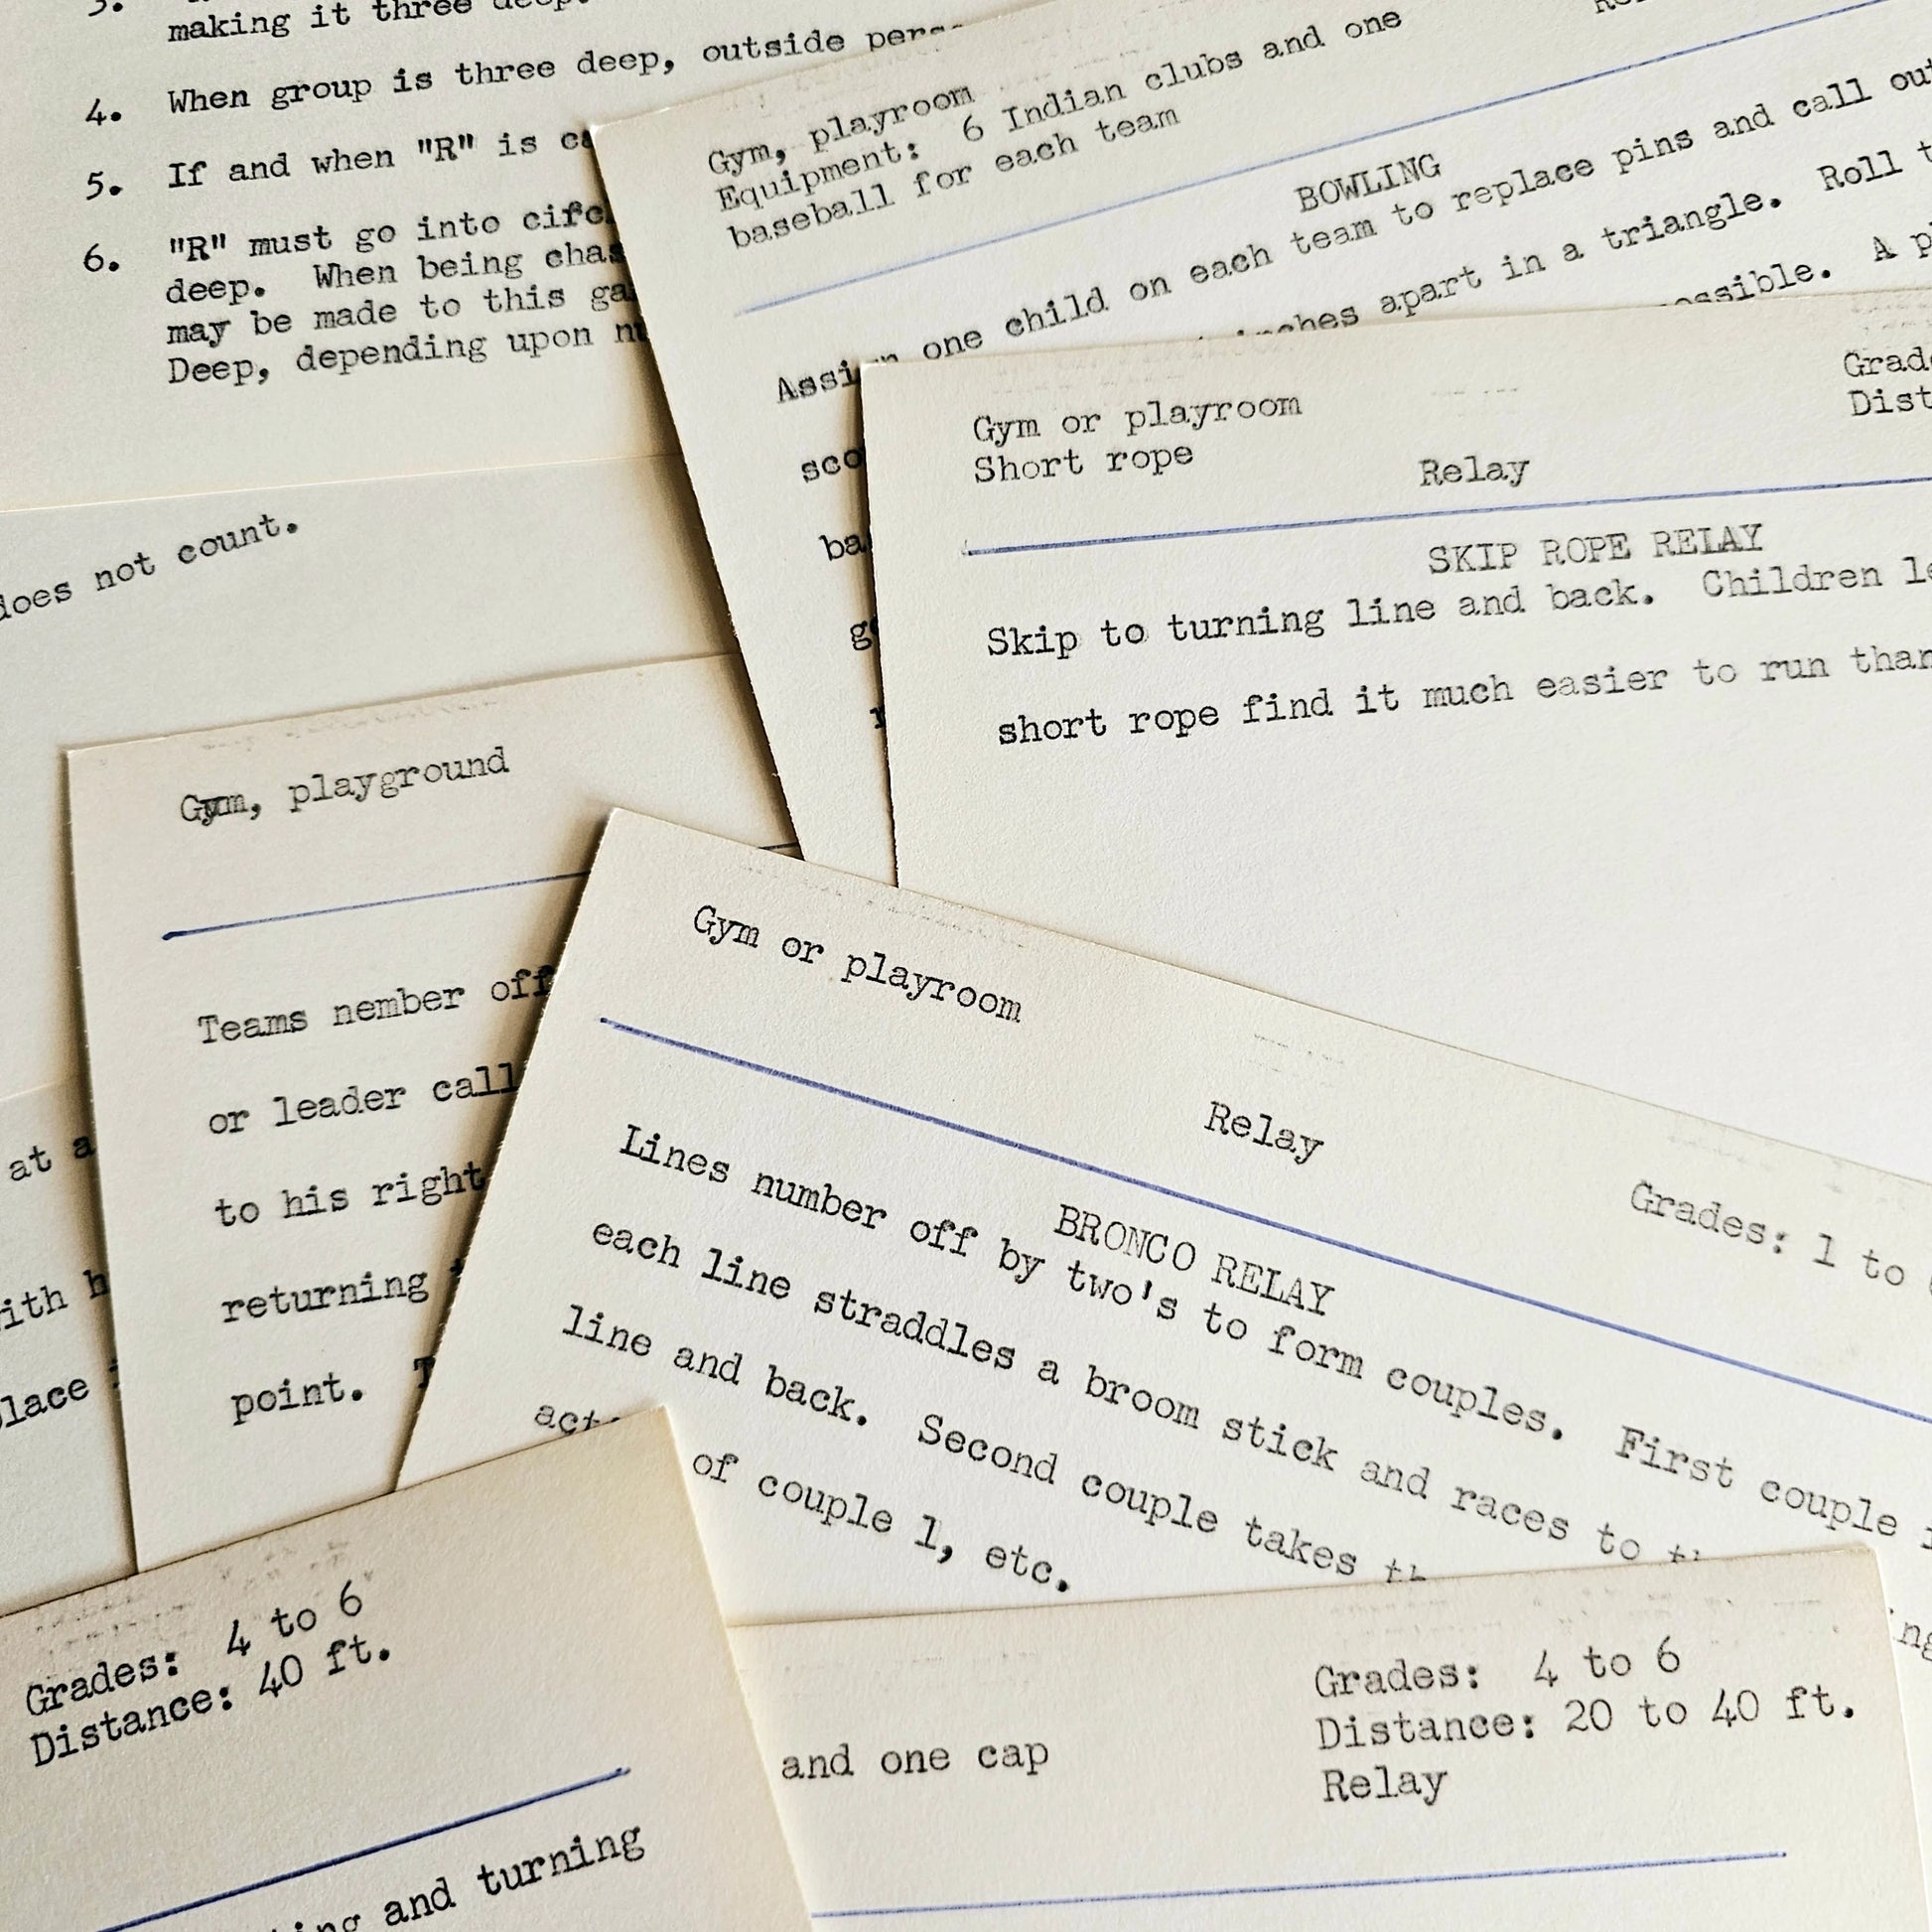 3.
making it three deep.
4. When group is three deep, outside
5. If and when "R" is
6. "R" must go into
deep. When being
may be made to this
Deep, depending upon
does not count.
at a
with
Gym, playroom
Equipment: 6 Indian clubs and one
baseball for each team
BOWLING
Assign one child on each team to replace pins and call out
inches apart in a triangle. Roll
possible. A
Gym or playroom
Short rope
Relay
SKIP ROPE RELAY
Skip to turning line and back. Children
short rope find it much easier to run than
Gym, playground
Teams nember off
or leader
to his right
returning
point.
Gym or playroom
Relay
Grades: 1 to
BRONCO RELAY
Lines number off by two's to form couples. First couple
each line straddles a broom stick and races to
line and back. Second couple takes
of couple 1, etc.
Grades: 4 to 6
Distance: 40 ft.
and turning
and one cap
Grades: 4 to 6
Distance: 20 to 40 ft.
Relay